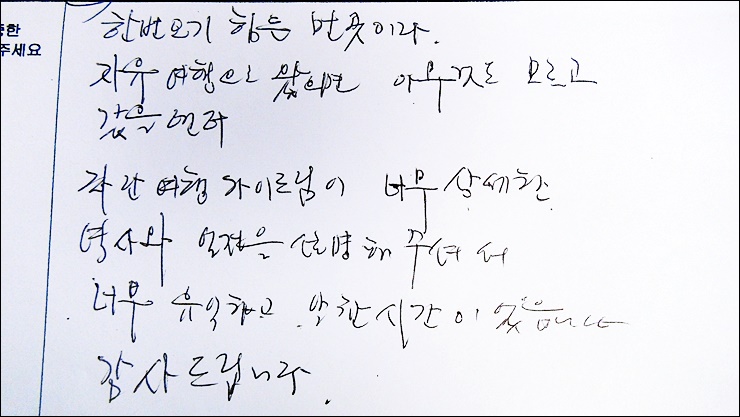 한
주세요
한번 오기 힘든 먼 곳이라.
자유 여행으로 왔으면 아무것도 모르고
갔을텐데
여행 가이드님이 너무 상세한
역사와 일정을 설명해 주셔서
너무 유익하고 시간이 었습니다
감사드립니다.